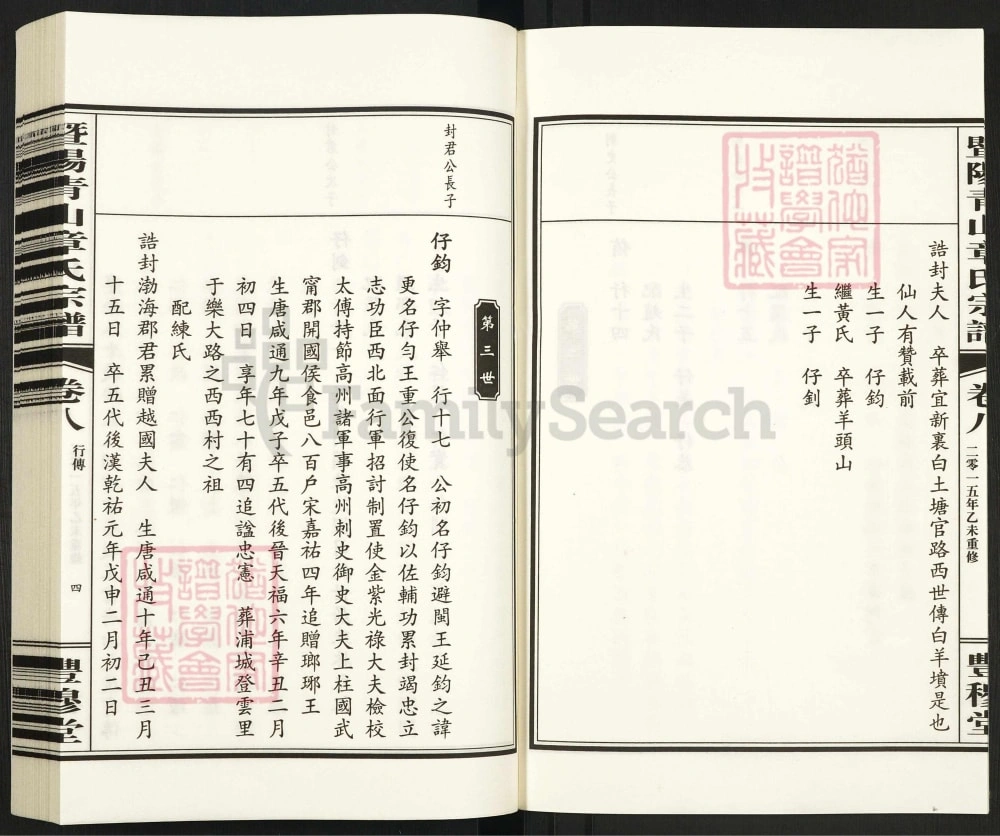 暨陽青山章氏宗譜
卷八
二零一五年乙未重修
豐穆堂
誥封夫人 卒葬宜新裏白土塘官路西世傳白羊墳是也
仙人有贊載前
生一子 仔鈞
繼黃氏 卒葬羊頭山
生一子 仔釗
第三世
封君公長子
仔鈞 字仲舉 行十七 公初名仔鈞避閩王延鈞之諱
更名仔勻王重公復使名仔鈞以佐輔功累封竭忠立
志功臣西北面行軍招討制置使金紫光祿大夫檢校
太傅持節高州諸軍事高州刺史御史大夫上柱國武
甯郡開國侯食邑八百戶宋嘉祐四年追贈瑯琊王
生唐咸通九年戊子卒五代後晉天福六年辛丑二月
初四日 享年七十有四追諡忠憲 葬浦城登雲里
于樂大路之西西村之祖
配練氏
誥封渤海郡君累贈越國夫人 生唐咸通十年己丑三月
十五日 卒五代後漢乾祐元年戊申二月初二日
暨陽青山章氏宗譜
卷八
行傳
四
豐穆堂
猶他家譜學會收藏
猶他家譜學會收藏
FamilySearch